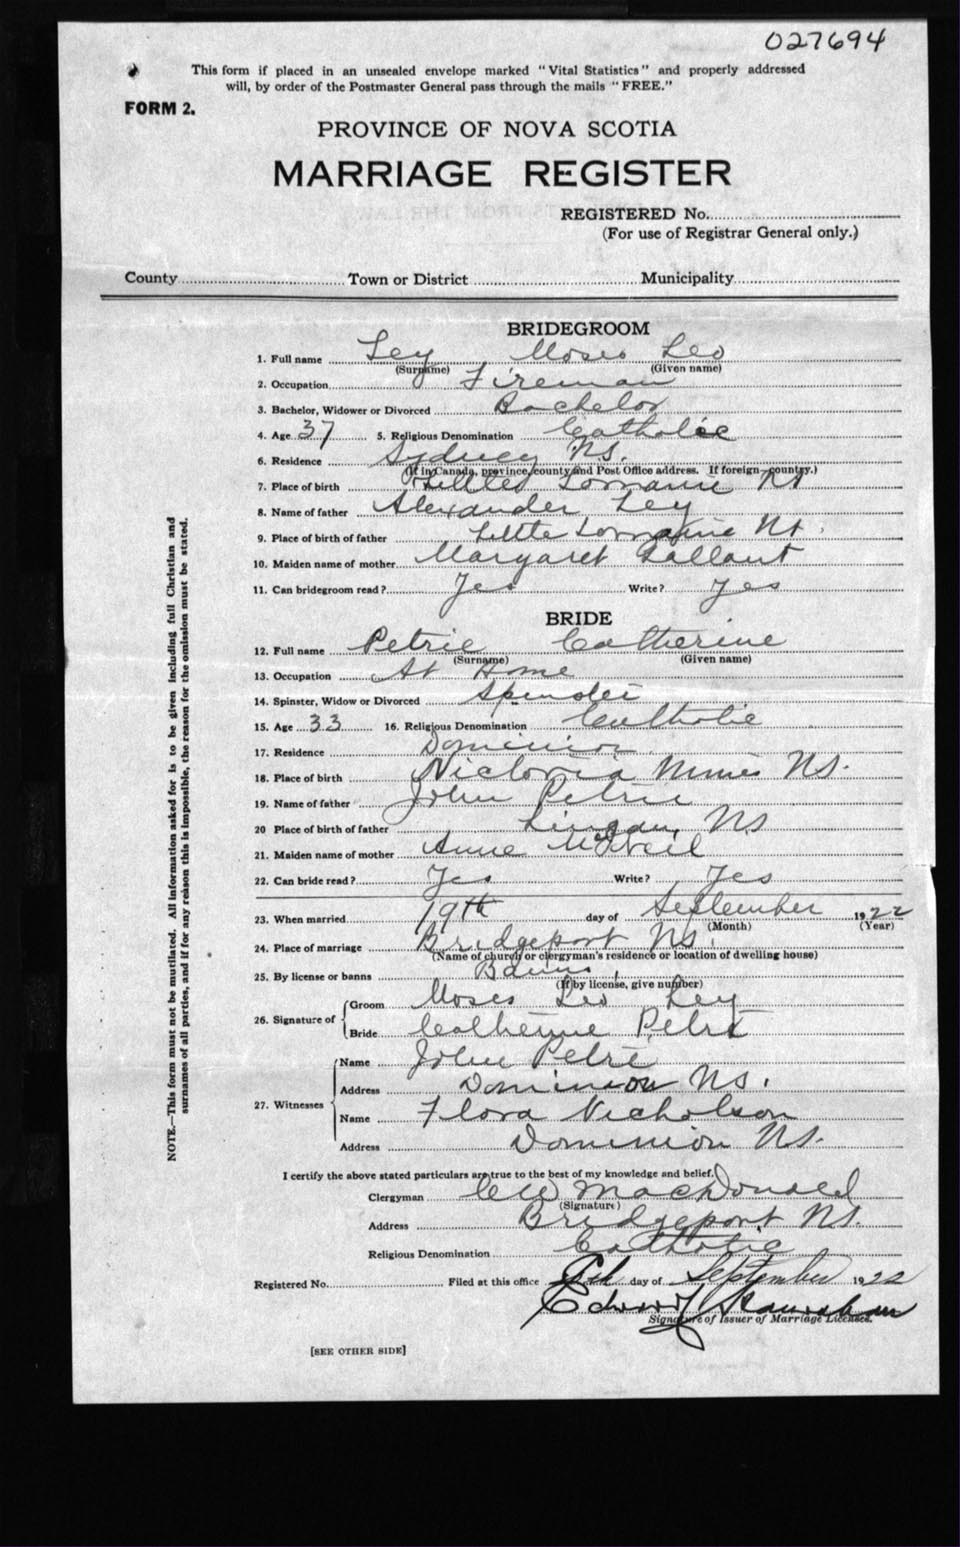 027694
This form if placed in an unsealed envelope marked "Vital Statistics" and properly addressed
will, by order of the Postmaster General pass through the mails "FREE."
FORM 2.
PROVINCE OF NOVA SCOTIA
MARRIAGE REGISTER
REGISTERED No.
(For use of Registrar General only.)
County Town or District Municipality
BRIDEGROOM
1. Full name Ley Moses Leo
(Surname) (Given name)
2. Occupation Fireman
3. Bachelor, Widower or Divorced Bachelor
4. Age 37 5. Religious Denomination Catholic
6. Residence Sydney NS.
(If in Canada, province, county and Post Office address. If foreign country.)
7. Place of birth Lorraine NS
8. Name of father Alexander Ley
9. Place of birth of father Little Lorraine NS.
10. Maiden name of mother Margaret Gallant
11. Can bridegroom read? Yes Write? Yes
BRIDE
12. Full name Petrie Catherine
(Surname) (Given name)
13. Occupation At Home
14. Spinster, Widow or Divorced Spinster
15. Age 33 16. Religious Denomination Catholic
17. Residence Dominion
18. Place of birth Victoria Mines NS.
19. Name of father John Petrie
20 Place of birth of father Lingan, NS
21. Maiden name of mother Anne McNeil
22. Can bride read? Yes Write? Yes
23. When married 19th day of September 1922
(Month) (Year)
24. Place of marriage Bridgeport NS.
(Name of church or clergyman's residence or location of dwelling house)
25. By license or banns Banns
(If by license, give number)
26. Signature of Groom Moses Leo Ley
Bride Catherine Petri
27. Witnesses Name John Petri
Address Dominion NS.
Name Flora Nicholson
Address Dominion NS.
I certify the above stated particulars are true to the best of my knowledge and belief.
Clergyman MacDonald
(Signature)
Address Bridgeport NS.
Religious Denomination Catholic
Registered No. Filed at this office day of September 1922
Edward
Signature of Issuer of Marriage Licenses.
[SEE OTHER SIDE]
NOTE.—This form must not be mutilated. All information asked for is to be given including full Christian and
surnames of all parties, and if for any reason this is impossible, the reason for the omission must be stated.